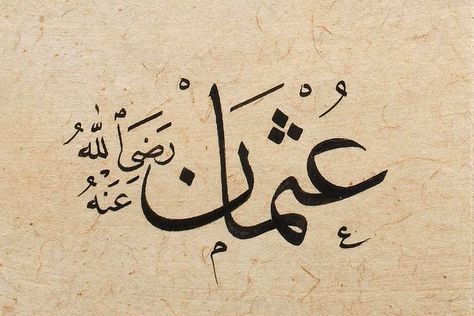 عُثْمَان
رَضِيَ ٱللّٰهُ
عَنْهُ